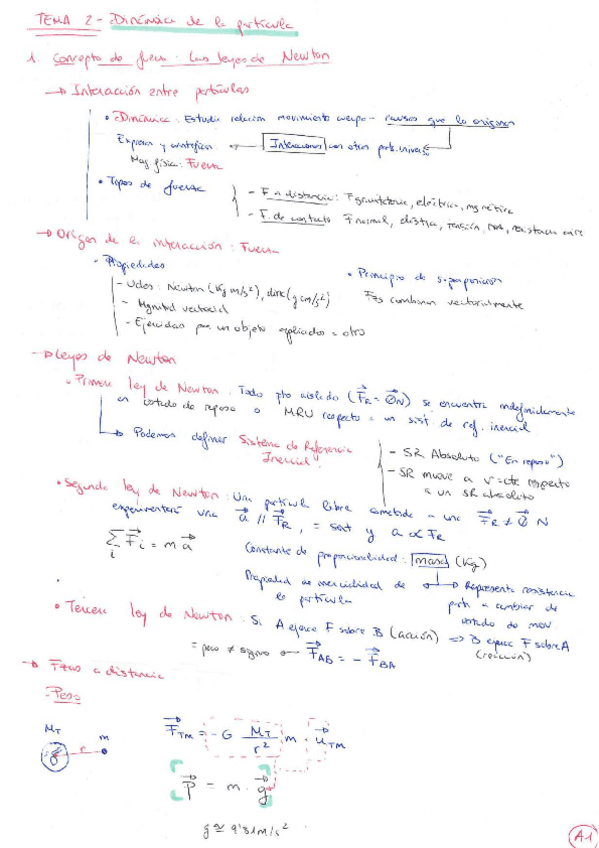 TEMA 2 - Dinámica de la partícula
1. Concepto de fuerza: Las leyes de Newton
→ Interacción entre partículas
• Dinámica: Estudia relación movimiento cuerpo - causas que lo originan
Expresa y cuantifica Interacciones con otras part. univers
Mag física: Fuerza
• Tipos de fuerza
- F a distancia: F gravitatoria, eléctrica, magnética
- F. de contacto F normal, elástica, tensión, roz, resistencia aire
→ Origen de la interacción: Fuerza
• Propiedades
- Udes: Newton (kg m/s²), dina (g cm/s²)
- Magnitud vectorial
- Ejercidas por un objeto aplicadas a otro
• Principio de superposición
Fzs combinan vectorialmente
→ Leyes de Newton
• Primera ley de Newton: Todo pto aislado (F_R = 0 N) se encuentra indefinidamente
en estado de reposo o MRU respecto a un sist. de ref. inercial
→ Podemos definir Sistema de Referencia
Inercial:
- SR Absoluto ("En reposo")
- SR mueve a v = cte respecto
a un SR absoluto
• Segunda ley de Newton: Una partícula libre sometida a una F_R ≠ 0 N
experimentará una a // F_R, = sent y a ∝ F_R
∑ F_i = m a
i
Constante de proporcionalidad: masa (kg)
Propiedad de inercialidad de
la partícula
→ Representa resistencia
part. a cambiar de
estado de mov.
• Tercera ley de Newton: Si A ejerce F sobre B (acción) ⇒ B ejerce F sobre A
(reacción)
= peso ≠ signo F_AB = - F_BA
→ Fzas a distancia
- Peso
M_T m
r
F_TM = - G M_T/r² m · u_TM
P = m · g
g ≃ 9'81 m/s²
A1